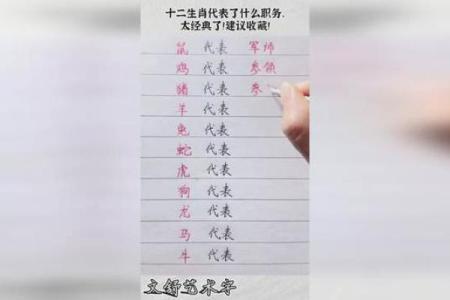 十二生肖代表了什么职务.
太经典了!建议收藏!
鼠 代表 军师
鸡 代表 参领
猪 代表 参
羊 代表
兔 代表
蛇 代表
虎 代表
狗 代表
龙 代表
马 代表
牛 代表
文舒艺术字